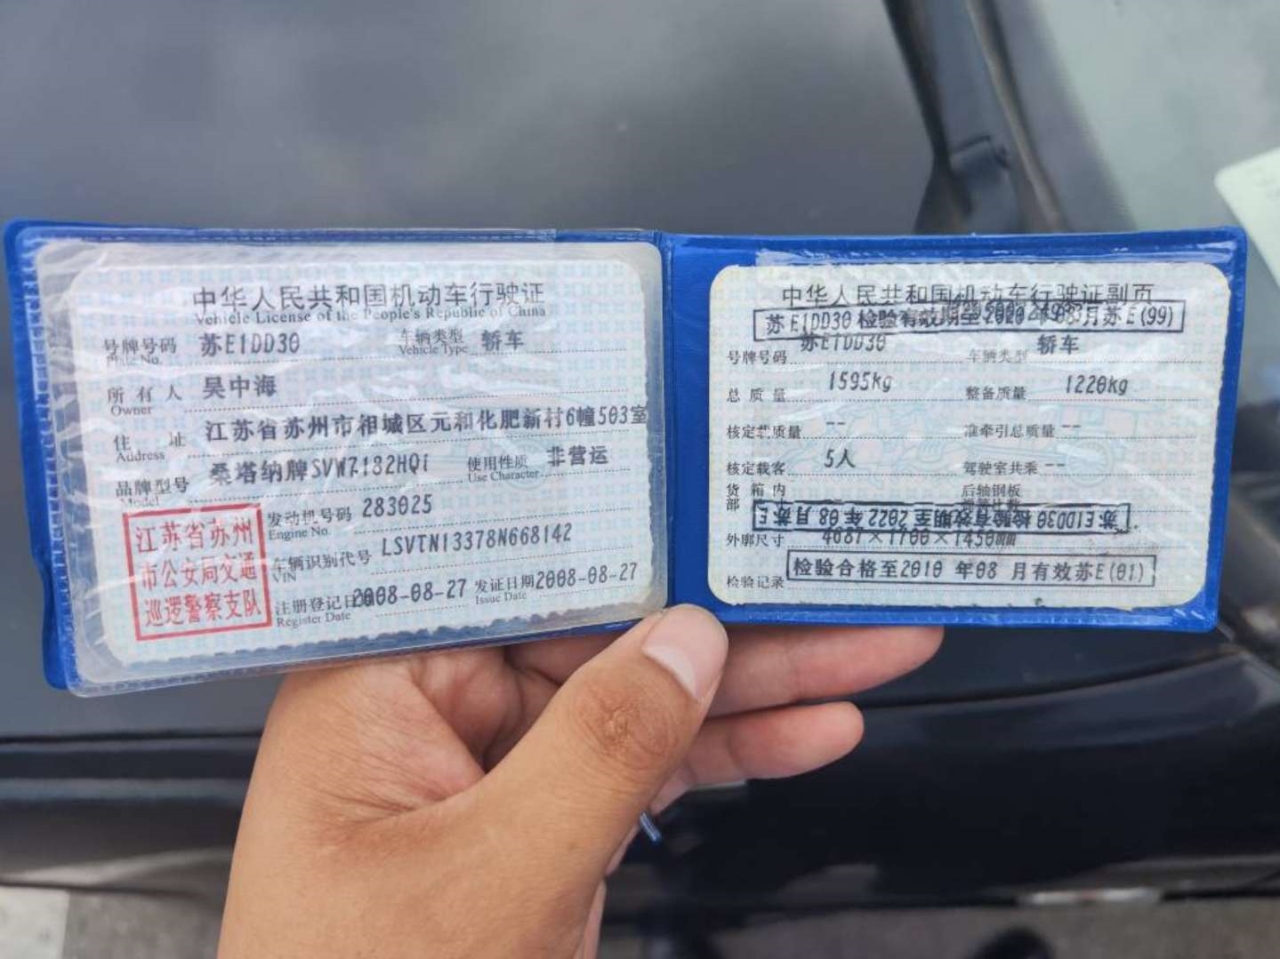 中华人民共和国机动车行驶证
Vehicle License of the People's Republic of China
号牌号码 苏E1DD30 车辆类型 轿车
Plate No. Vehicle Type
所有人 吴中海
Owner
住址 江苏省苏州市相城区元和化肥新村6幢503室
Address
品牌型号 桑塔纳牌SVW7182HQi 使用性质 非营运
Model Use Character
江苏省苏州
市公安局交通
巡逻警察支队
发动机号码 283025
Engine No.
车辆识别代号 LSVTN13378N668142
VIN
注册登记日期 2008-08-27 发证日期 2008-08-27
Register Date Issue Date
中华人民共和国机动车行驶证副页
苏E1DD30 检验有效期至2020年08月苏E(99)
号牌号码 苏E1DD30 车辆类型 轿车
总质量 1595kg 整备质量 1220kg
核定载质量 -- 准牵引总质量 --
核定载客 5人 驾驶室共乘 --
货箱内 后轴钢板
苏E1DD30 检验有效期至2022年08月苏E
外廓尺寸 4687×1700×1450mm
检验记录 检验合格至2010 年08 月有效苏E(01)